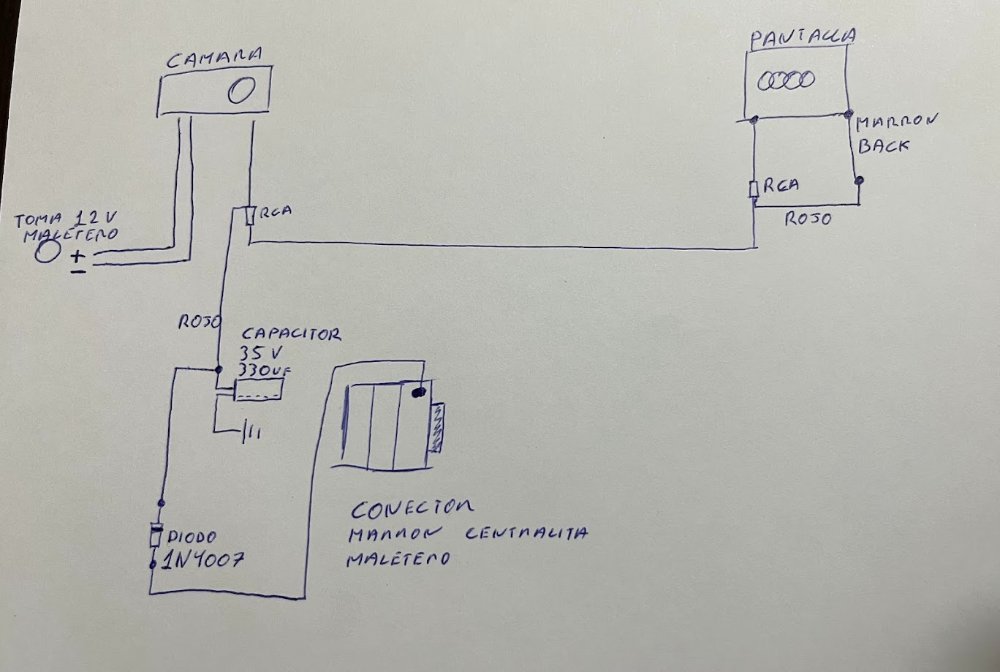 CAMARA
PANTALLA
MARRON
BACK
RCA
ROJO
RCA
TOMA 12V
MALETERO
+
-
ROJO
CAPACITOR
35 V
330UF
CONECTOR
MARRON CENTRALITA
MALETERO
DIODO
1N4007